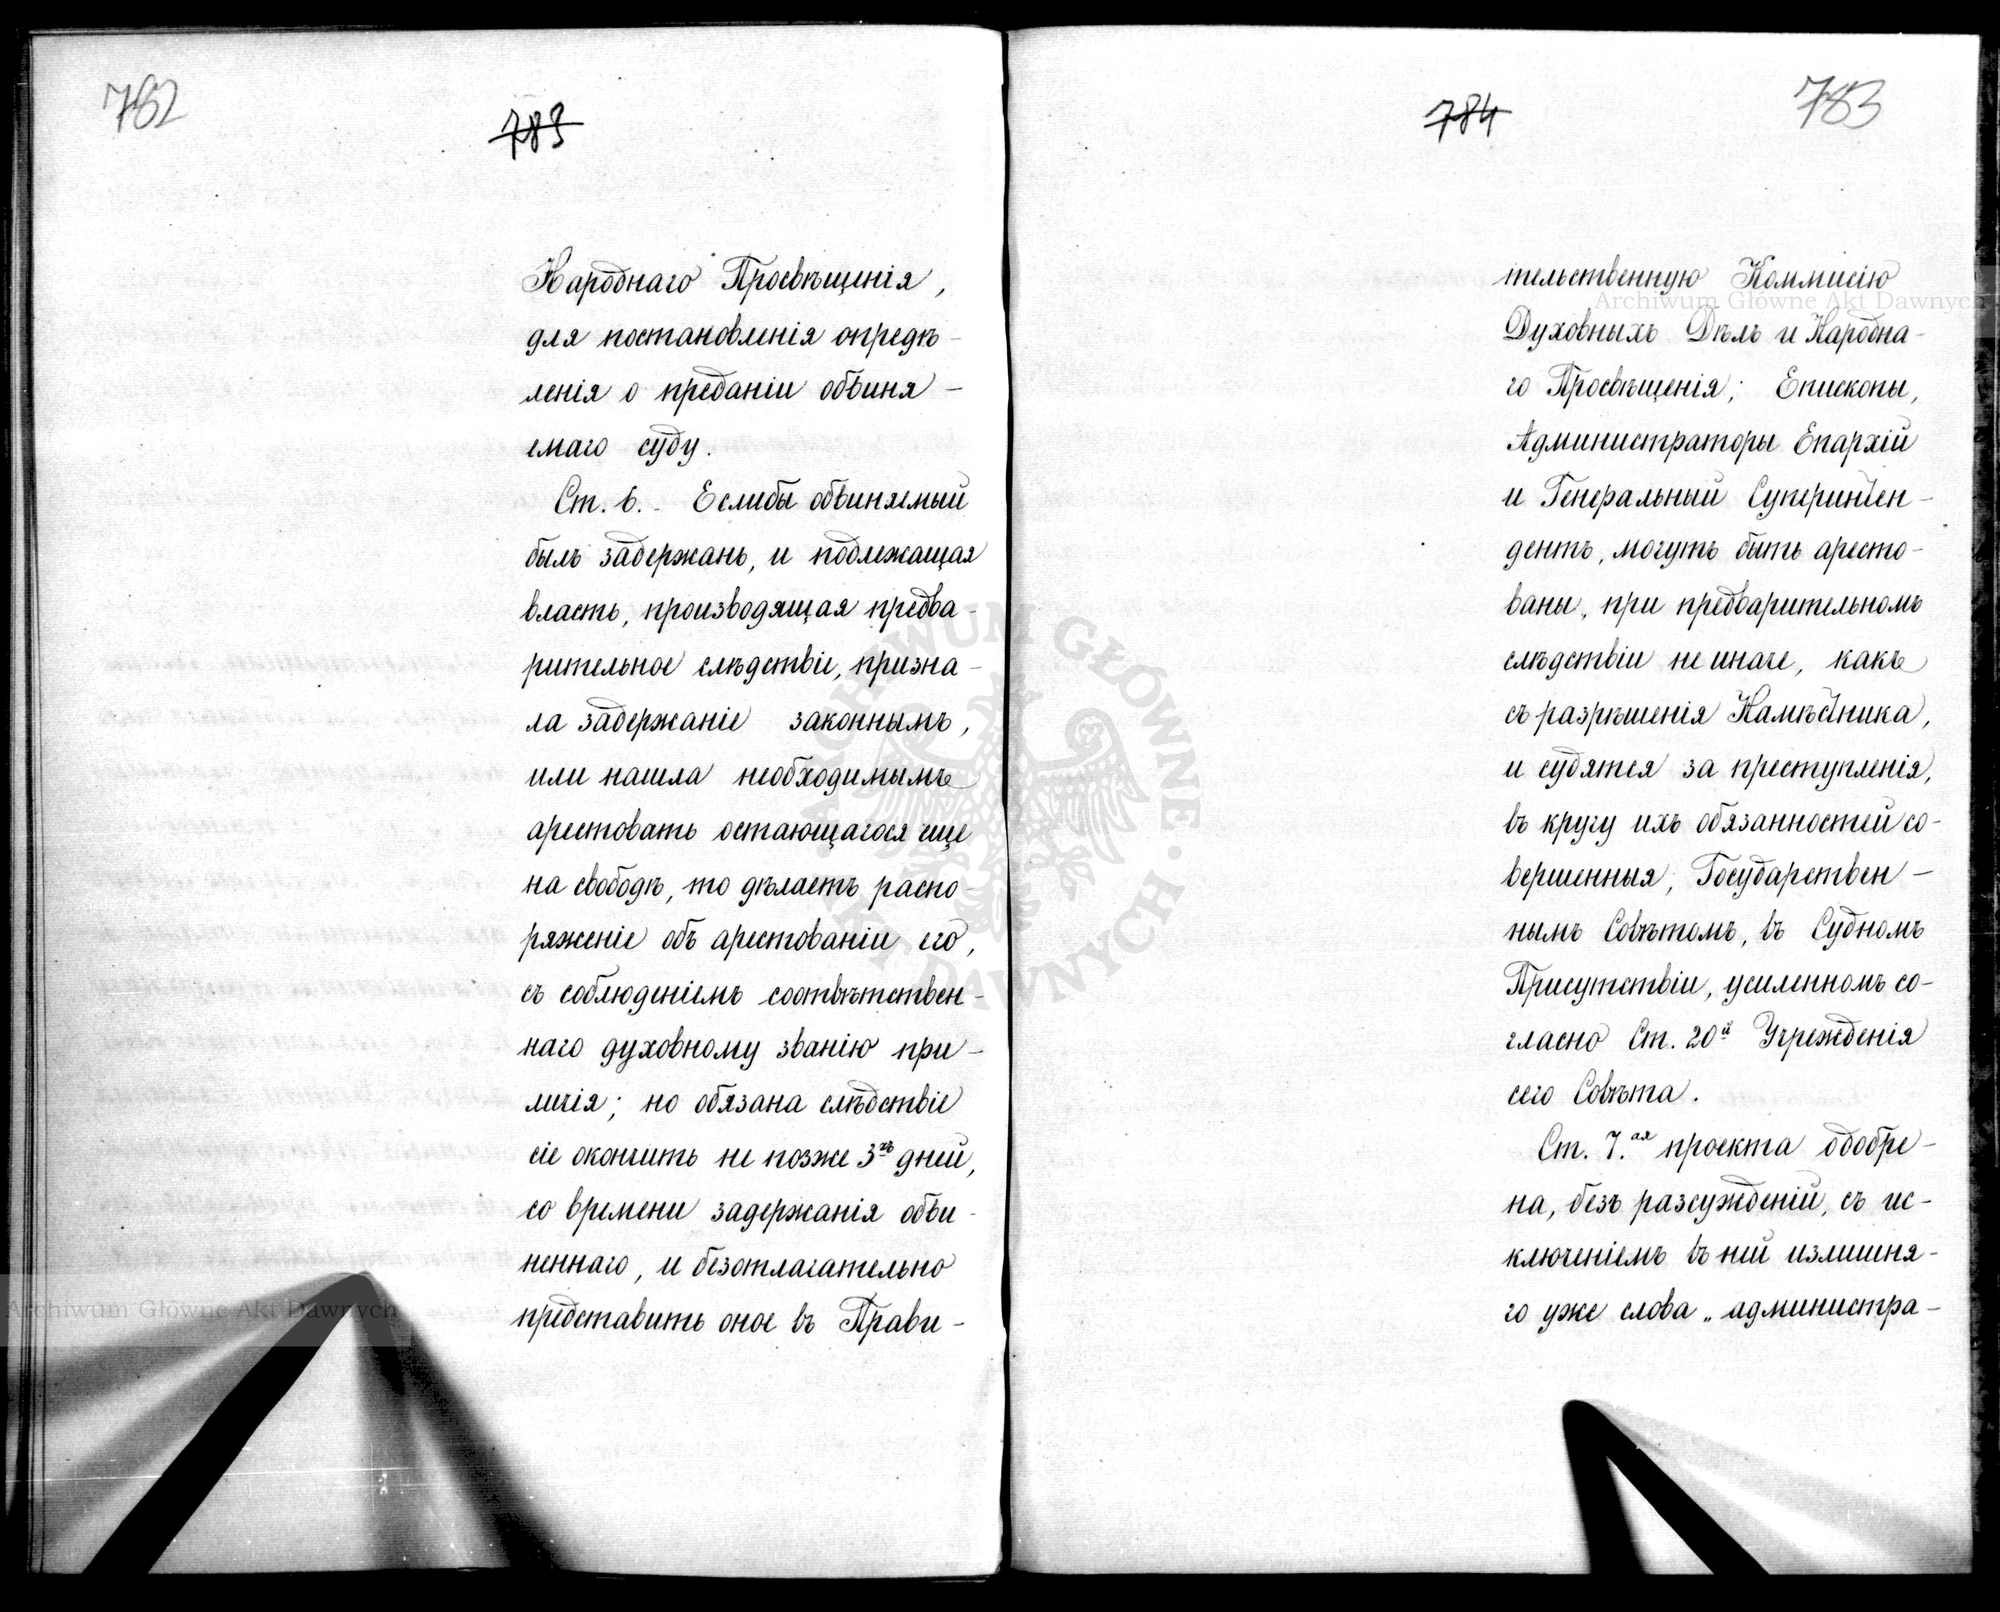 782
783
Народнаго Просвѣщенія,
для постановленія опредѣ-
ленія о преданіи обвиня-
емаго суду.
Ст. 6. Еслибы обвиняемый
былъ задержанъ, и подлежащая
власть, производящая предва-
рительное слѣдствіе, призна-
ла задержаніе законнымъ,
или нашла необходимымъ
арестовать остающагося еще
на свободѣ, то дѣлаетъ распо-
ряженіе объ арестованіи его,
съ соблюденіемъ соотвѣтствен-
наго духовному званію при-
личія; но обязана слѣдствіе
сіе окончить не позже 3хъ дней,
со времени задержанія обви-
неннаго, и безотлагательно
представить оное въ Прави-
Archiwum Główne Akt Dawnych
784
783
тельственную Коммисію
Archiwum Główne Akt Dawnych
Духовныхъ Дѣлъ и Народна-
го Просвѣщенія; Епископы,
Администраторы Епархій
и Генеральный Суперинтен-
дентъ, могутъ быть аресто-
ваны, при предварительномъ
слѣдствіи не иначе, какъ
съ разрѣшенія Намѣстника,
и судятся за преступленія,
въ кругу ихъ обязанностей со-
вершенныя, Государствен-
нымъ Совѣтомъ, въ Судномъ
Присутствіи, усиленномъ со-
гласно Ст. 20й Учрежденія
сего Совѣта.
Ст. 7.ая проекта одобре-
на, безъ разсужденій, съ ис-
ключеніемъ въ ней излишня-
го уже слова „администра-
ARCHIWUM GŁÓWNE AKT DAWNYCH